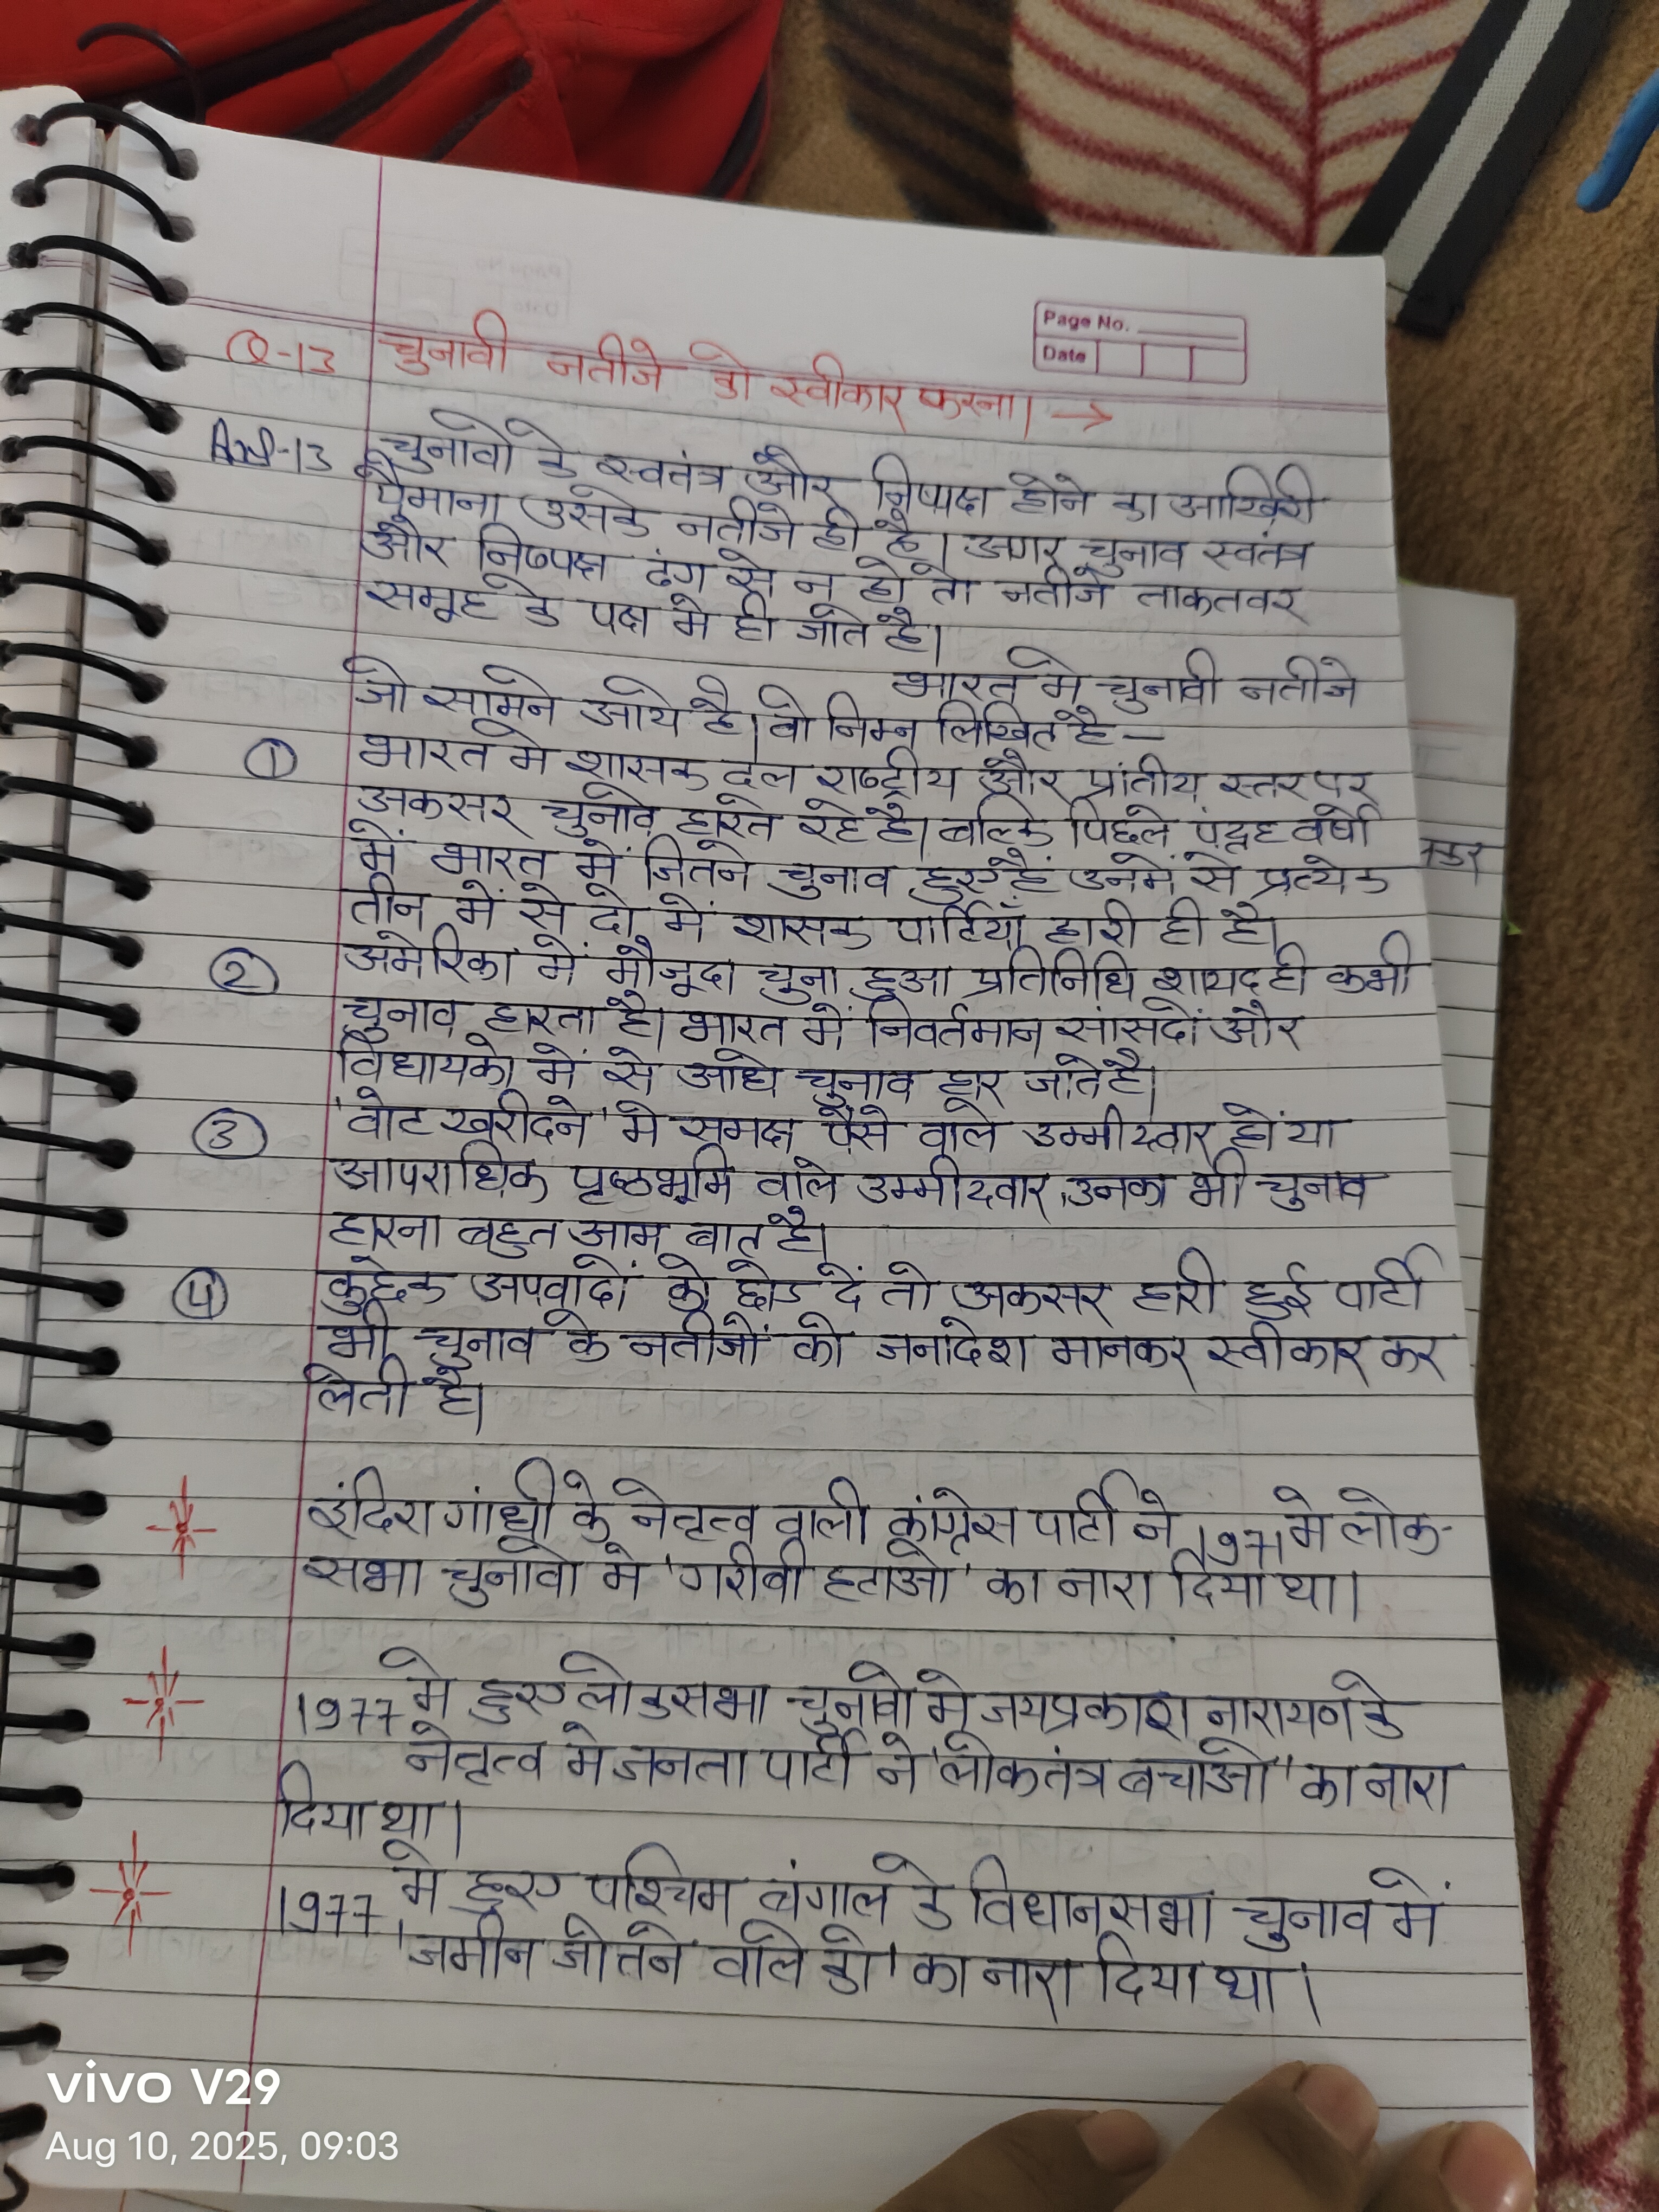 Page No.
Date
Q-13 चुनावी नतीजे को स्वीकार करना। →
Ans-13 चुनावों के स्वतंत्र और निष्पक्ष होने का आखिरी
पैमाना उसके नतीजे ही है। अगर चुनाव स्वतंत्र
और निष्पक्ष ढंग से न हो तो नतीजे ताकतवर
समूह के पक्ष मे ही जाते है।
भारत मे चुनावी नतीजे
जो सामने आये है। वो निम्न लिखित है –
① भारत मे शासक दल राष्ट्रीय और प्रांतीय स्तर पर
अकसर चुनाव हारते रहे है। बल्कि पिछले पंद्रह वर्षो
में भारत में जितने चुनाव हुए हैं उनमें से प्रत्येक
तीन में से दो में शासक पार्टियाँ हारी ही है।
② अमेरिका में मौजूदा चुना हुआ प्रतिनिधि शायद ही कभी
चुनाव हारता है। भारत में निवर्तमान सांसदों और
विधायको में से आधे चुनाव हार जाते है।
③ 'वोट खरीदने' मे समक्ष पैसे वाले उम्मीदवार हों या
आपराधिक पृष्ठभूमि वाले उम्मीदवार, उनका भी चुनाव
हारना बहुत आम बात है।
④ कुछेक अपवादों को छोड दें तो अकसर हारी हुई पार्टी
भी चुनाव के नतीजों को जनादेश मानकर स्वीकार कर
लेती है।
इंदिरा गांधी के नेतृत्व वाली कांग्रेस पार्टी ने 1971 मे लोक-
सभा चुनावो मे 'गरीबी हटाओ' का नारा दिया था।
1977 मे हुए लोकसभा चुनावो मे जयप्रकाश नारायण के
नेतृत्व मे जनता पार्टी ने 'लोकतंत्र बचाओ' का नारा
दिया था।
1977 मे हुए पश्चिम बंगाल के विधानसभा चुनाव में
'जमीन जोतने वाले को' का नारा दिया था।
vivo V29
Aug 10, 2025, 09:03